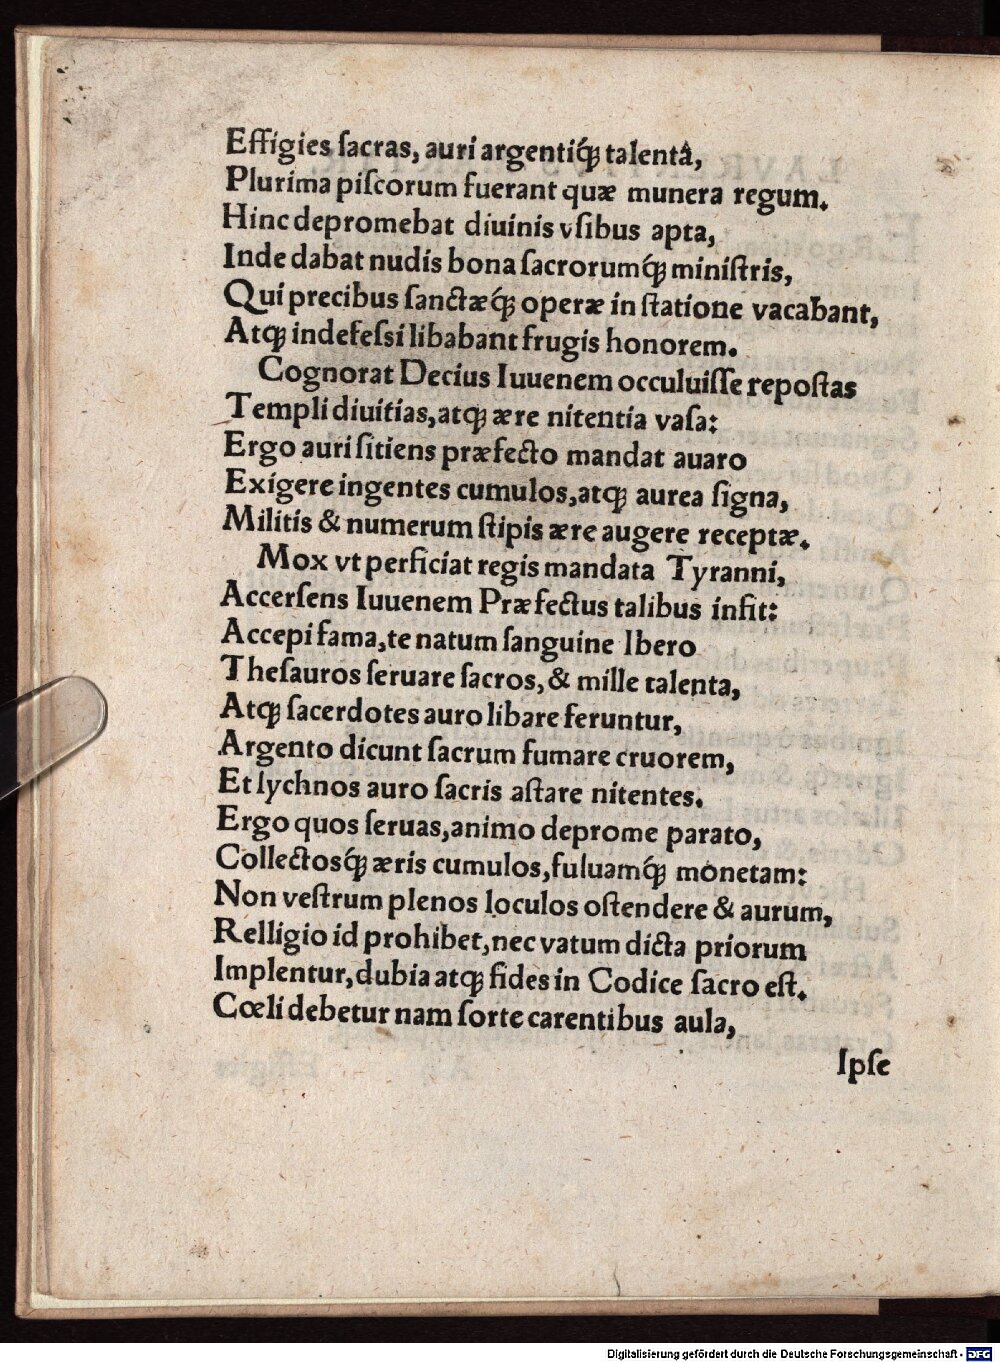 Effigies ſacras, auri argentiq́ꝫ talentâ,
Plurima piſcorum fuerant quæ munera regum.
Hinc depromebat diuinis vſibus apta,
Inde dabat nudis bona ſacrorumq́ꝫ miniſtris,
Qui precibus ſanctæq́ꝫ operæ in ſtatione vacabant,
Atqꝫ indefeſsi libabant frugis honorem.
Cognorat Decius Iuuenem occuluiſſe repoſtas
Templi diuitias, atqꝫ ære nitentia vaſa:
Ergo auri ſitiens præfecto mandat auaro
Exigere ingentes cumulos, atqꝫ aurea ſigna,
Militis & numerum ſtipis ære augere receptæ.
Mox vt perficiat regis mandata Tyranni,
Accerſens Iuuenem Præfectus talibus infit:
Accepi fama, te natum ſanguine Ibero
Theſauros ſeruare ſacros, & mille talenta,
Atqꝫ ſacerdotes auro libare feruntur,
Argento dicunt ſacrum fumare cruorem,
Et lychnos auro ſacris aſtare nitentes.
Ergo quos ſeruas, animo deprome parato,
Collectosq́ꝫ æris cumulos, fuluamq́ꝫ monetam:
Non veſtrum plenos loculos oſtendere & aurum,
Relligio id prohibet, nec vatum dicta priorum
Implentur, dubia atqꝫ fides in Codice ſacro eſt.
Cœli debetur nam ſorte carentibus aula,
Ipſe
Digitalisierung gefördert durch die Deutsche Forschungsgemeinschaft - DFG